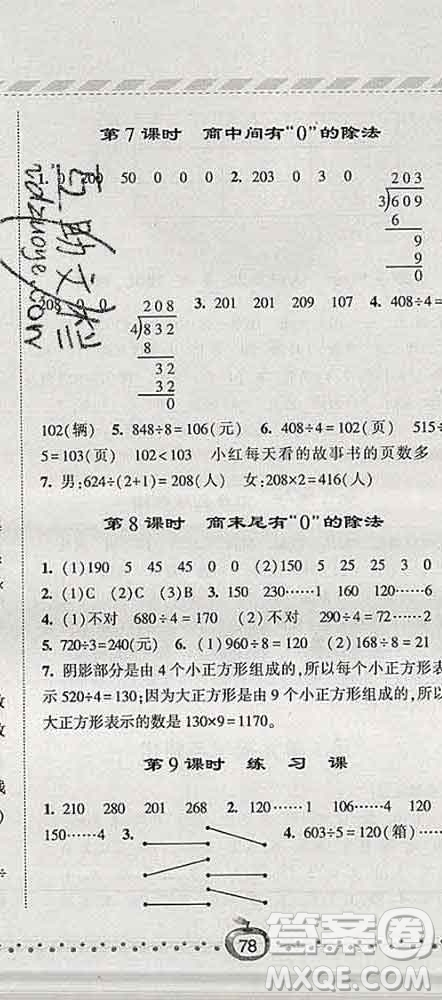 第7课时 商中间有“0”的除法
200 50 0 0 0 2. 203 0 3 0
203
3)609
6
9
9
0
208 0 0
208
4)832
8
32
32
0
3. 201 201 209 107 4. 408÷4=
102(辆) 5. 848÷8=106(元) 6. 408÷4=102(页) 515÷
5=103(页) 102<103 小红每天看的故事书的页数多
7. 男:624÷(2+1)=208(人) 女:208×2=416(人)
第8课时 商末尾有“0”的除法
1. (1)190 5 45 45 0 0 (2)150 5 25 25 3 0
2. (1)C (2)C (3)B 3. 150 230……1 160 120……6
4. (1)不对 680÷4=170 (2)不对 290÷4=72……2
5. 720÷3=240(元) 6. (1)960÷8=120 (2)168÷8=21
7. 阴影部分是由4个小正方形组成的,所以每个小正方形表
示520÷4=130;因为大正方形是由9个小正方形组成的,所以
大正方形表示的数是130×9=1170。
第9课时 练习课
1. 210 280 201 268 2. 120……1 106……4 120
150……4 3. 4. 603÷5=120(箱)……
78
互助文栏
vidzuoye.com
答案圈
MXQE.COM